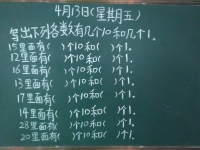 4月13日(星期五)
写出下列各数有几个10和几个1。
15里面有( )个10和( )个1。
12里面有( )个10和( )个1。
16里面有( )个10和( )个1。
13里面有( )个10和( )个1。
17里面有( )个10和( )个1。
14里面有( )个10和( )个1。
28里面有( )个10和( )个1。
20里面有( )个10和( )个1。